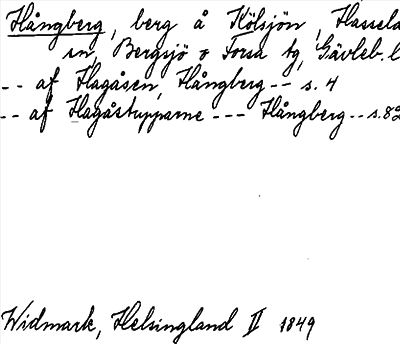 Hångberg, berg å Kölsjön, Hassela
sn, Bergsjö o Forsa tg, Gävleb. l
-- af Hagåsen, Hångberg -- s. 4
-- af Hagåstupparne --- Hångberg -- s. 82
Widmark, Helsingland II 1849